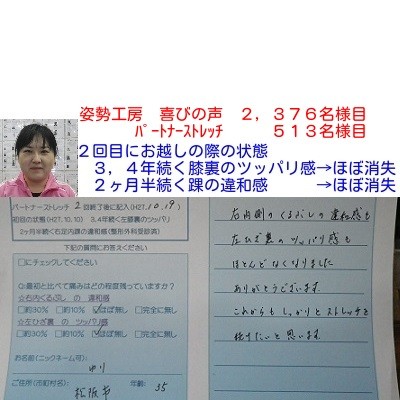 姿勢工房　喜びの声　２，３７６名様目
ﾊﾟｰﾄﾅｰｽﾄﾚｯﾁ　５１３名様目
２回目にお越しの際の状態
３，４年続く膝裏のツッパリ感→ほぼ消失
２ヶ月半続く踝の違和感　→ほぼ消失
パートナーストレッチ 2 回終了後に記入(H27.10.19)
初回の状態(H27.10.10) 3,4年続く左膝裏のツッパリ
2ヶ月半続く右足内踝の違和感(整形外科受診済)
下記の質問にお答えください
□にチェックしてください
Q:最初と比べて痛みはどの程度残っていますか?
☆右内くるぶし の 違和感
□約30% □約10% ☑ほぼ無し □完全に無し
☆左ひざ裏 の ツッパリ感
□約30% □約10% ☑ほぼ無し □完全に無し
お名前(ニックネーム可):
ゆり
ご住所(市町村名): 松阪市 年齢: 35
右内側のくるぶしの違和感も
左ひざ裏のツッパリ感も
ほとんどなくなりました
ありがとうございます
これからもしっかりとストレッチを
続けたいと思います